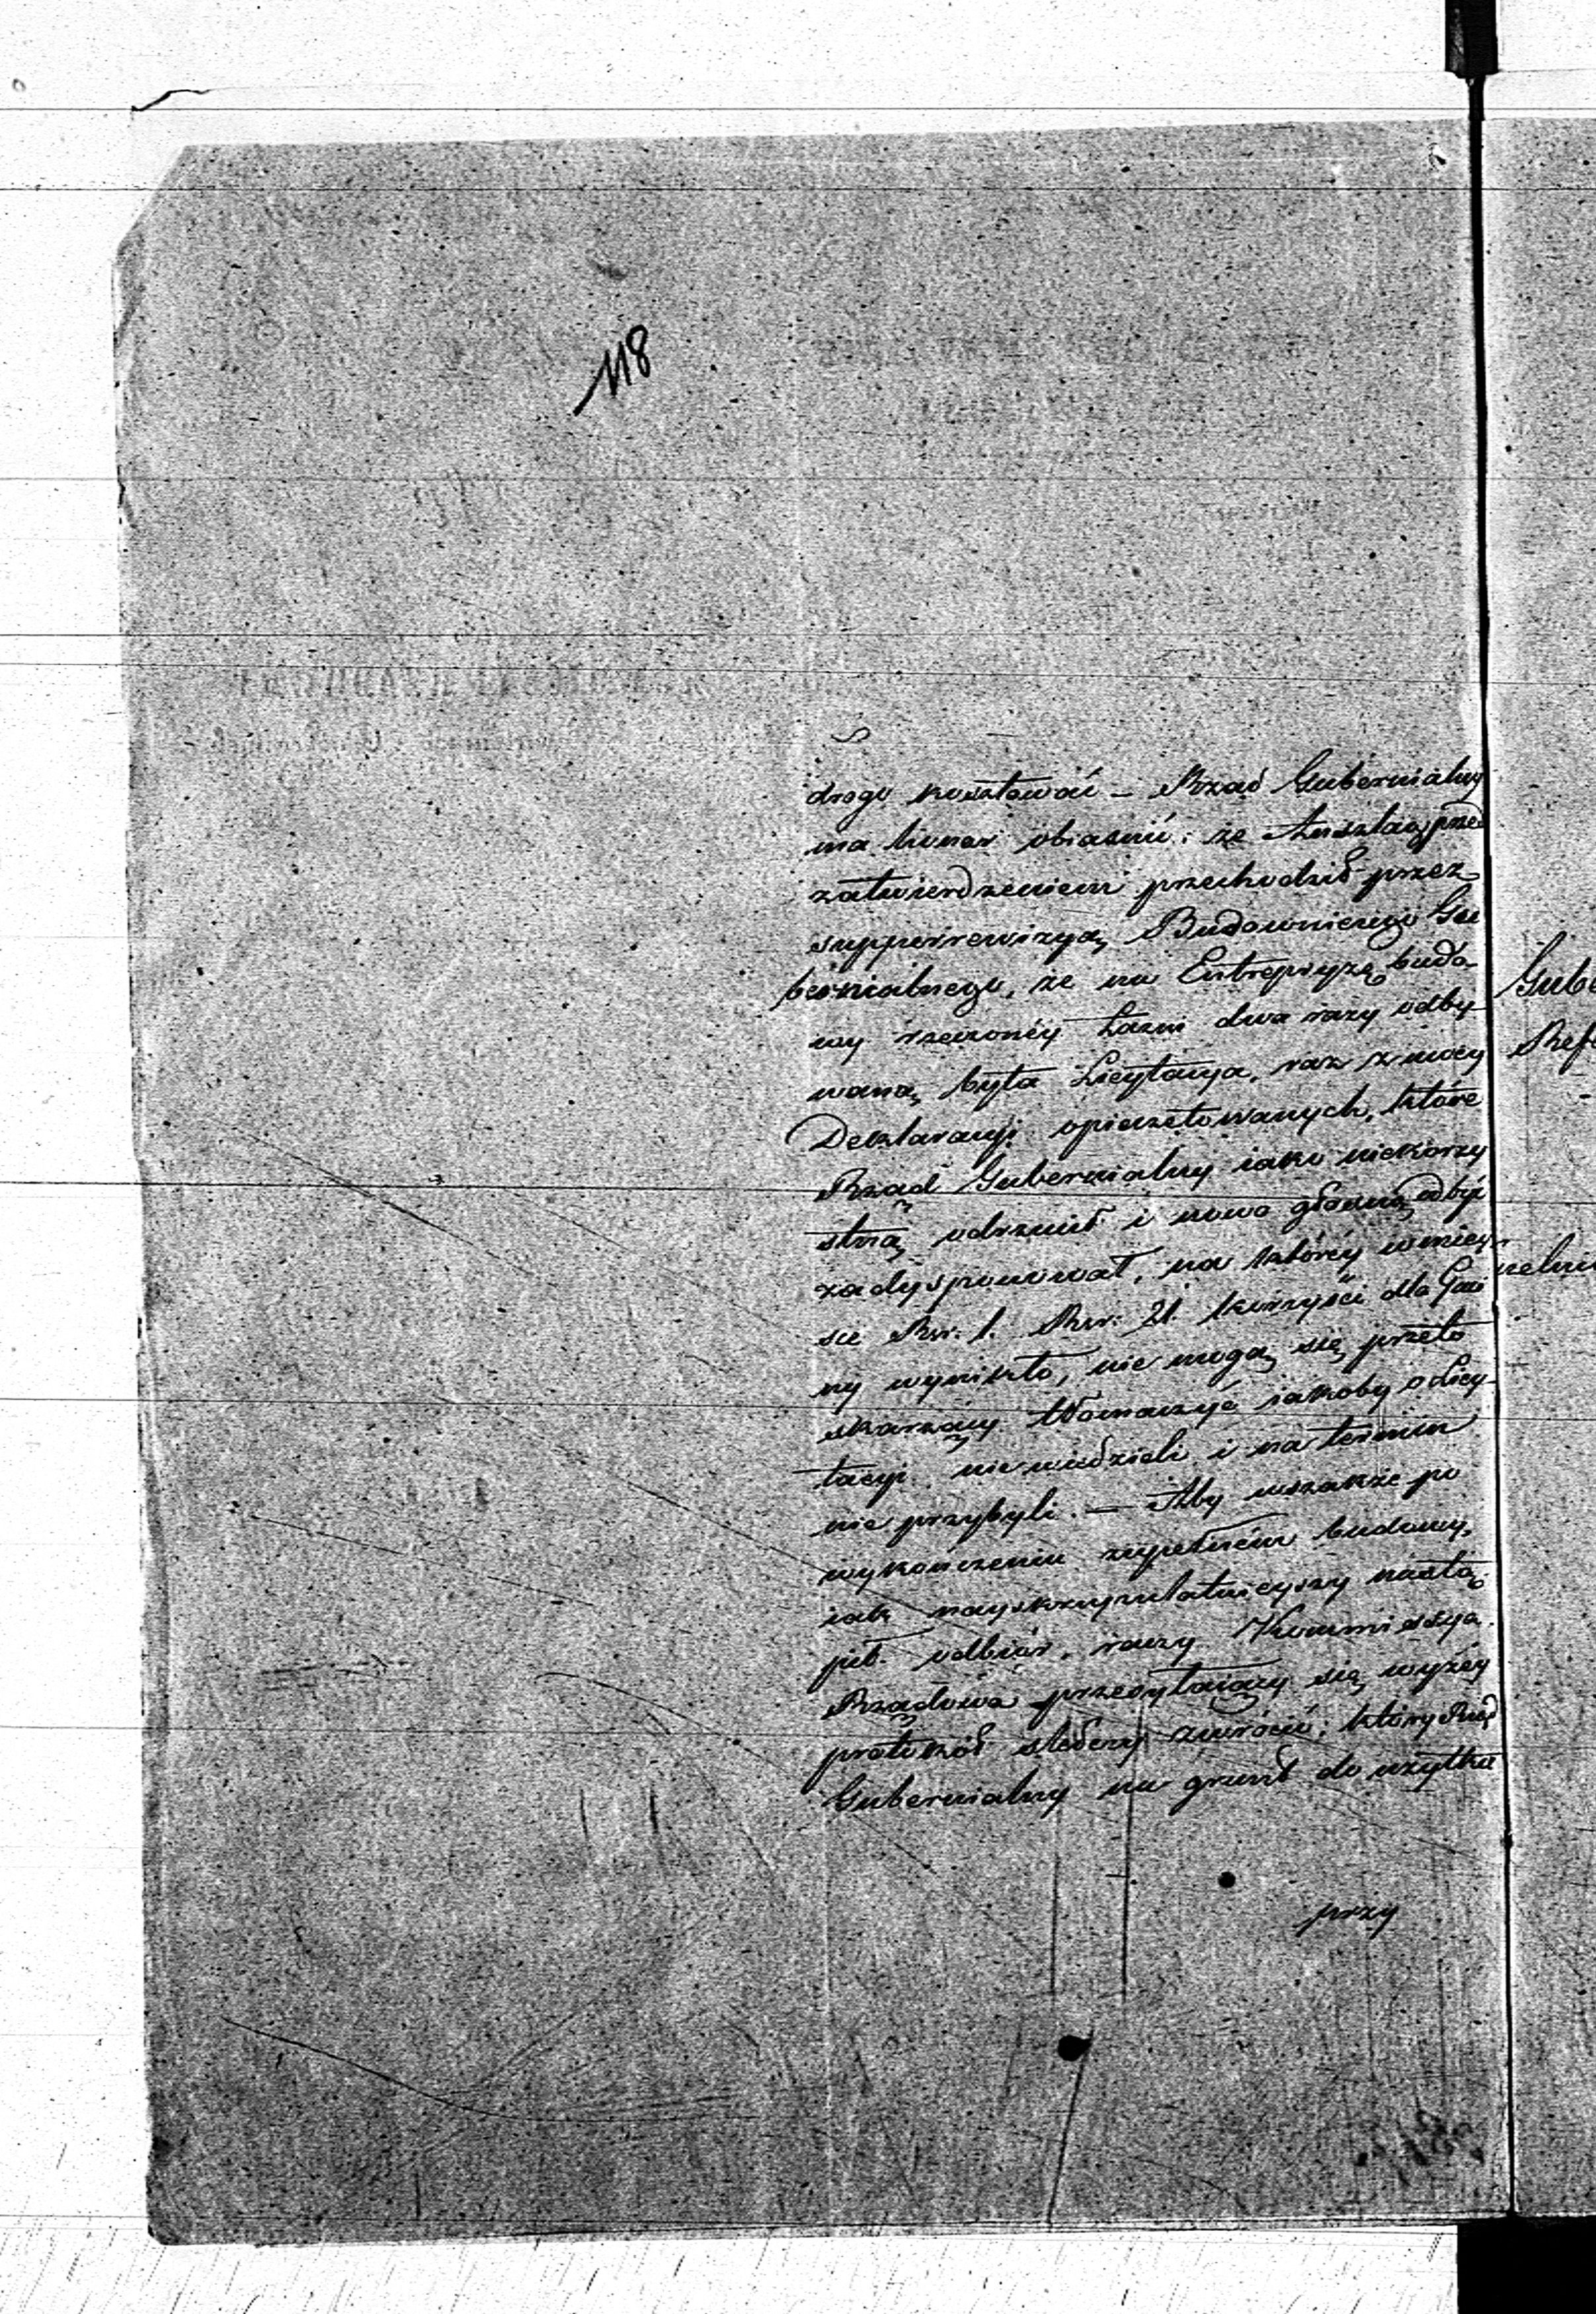 118
drogo kosztować — Rząd Gubernialny
ma honor obiaśnić: że Anszlag przed
zatwierdzeniem przechodził przez
supperrewizyą Budowniczego Gu
bernialnego, że na Entrepryzę budo-
wy rzeczonéy Łazni dwa razy odby-
waną była Licytacya, raz z mocy
Deklaracyi opieczętowanych, które
Rząd Gubernialny iako niekorzy
stną odrzucił i nowo głośną odbyć
zadysponował, na któréy w miey-
sce Rsr: 1. Rsr: 21. korzyści dla Gmi
ny wynikło, nie mogą się przeto
skarżący tłomaczyć iakoby o Licy-
tacyi nie wiedzieli i na termin
nie przybyli. — Aby wszakże po
wykończeniu zupełnem budowy,
iak nayskrupulatnieyszy nastą-
pił odbiór, raczy Kommissya
Rządowa przesyłaiący się wyżéy
protokół śledczy zwrócić; który Rząd
Gubernialny na grunt do użytku
przy
Gube
Refe